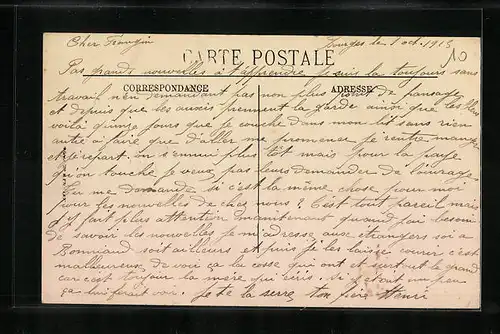 Cher Frangin
Bourges le 1 oct. 1915
10
CARTE POSTALE
Pas grands nouvelles à t'apprendre je suis la toujours sans
CORRESPONDANCE
ADRESSE
travail n'en demandant pas non plus, point de pansage
et depuis que les auxis prennent la garde ainsi que les
voilà quinze jours que je couche dans mon lit sans rien
autre à faire que d'aller me promener, je rentre manger
et je repart. on s'ennui plus tôt mais pour la paye
qu'on touche je veux pas leurs demander de l'ouvrage.
Tu me demande si c'est la même chose pour moi
pour les nouvelles de chez nous ? C'est tout pareil mais
j'y fait plus attention maintenant quand j'ai besoin
de savoir les nouvelles je m'adresse aux étrangers soi a
Bonniaud soit ailleurs et puis je les laisse courir c'est
malheureux de voir ça la cosse qu'ils ont et surtout le grand
car c'est toujour la mère qui écris. si y était un peu
ça lui ferait voir. Je te la serre, ton frère Henri